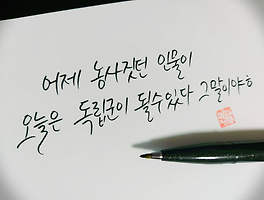 어제 농사짓던 인물이
오늘은 독립군이 될수있다 그말이야ㅎ